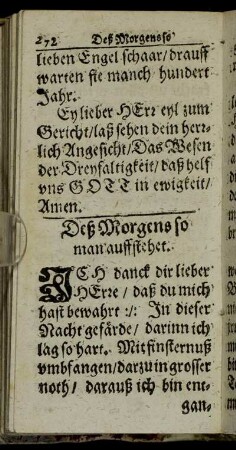 272 Deß Morgens so
lieben Engel schaar/drauff
warten sie manch hundert
Jahr.
Ey lieber HErr eyl zum
Gericht/laß sehen dein herr-
lich Angesicht/Das Wesen
der Dreyfaltigkeit/daß helf
vns GOTT in ewigkeit/
Amen.
Deß Morgens so
man auffstehet.
ICH danck dir lieber
HErre / daß du mich
hast bewahrt :/: In dieser
Nacht gefärde/ darinn ich
lag so hart. Mit finsternuß
vmbfangen/darzu in grosser
noth/ darauß ich bin ent-
gan-